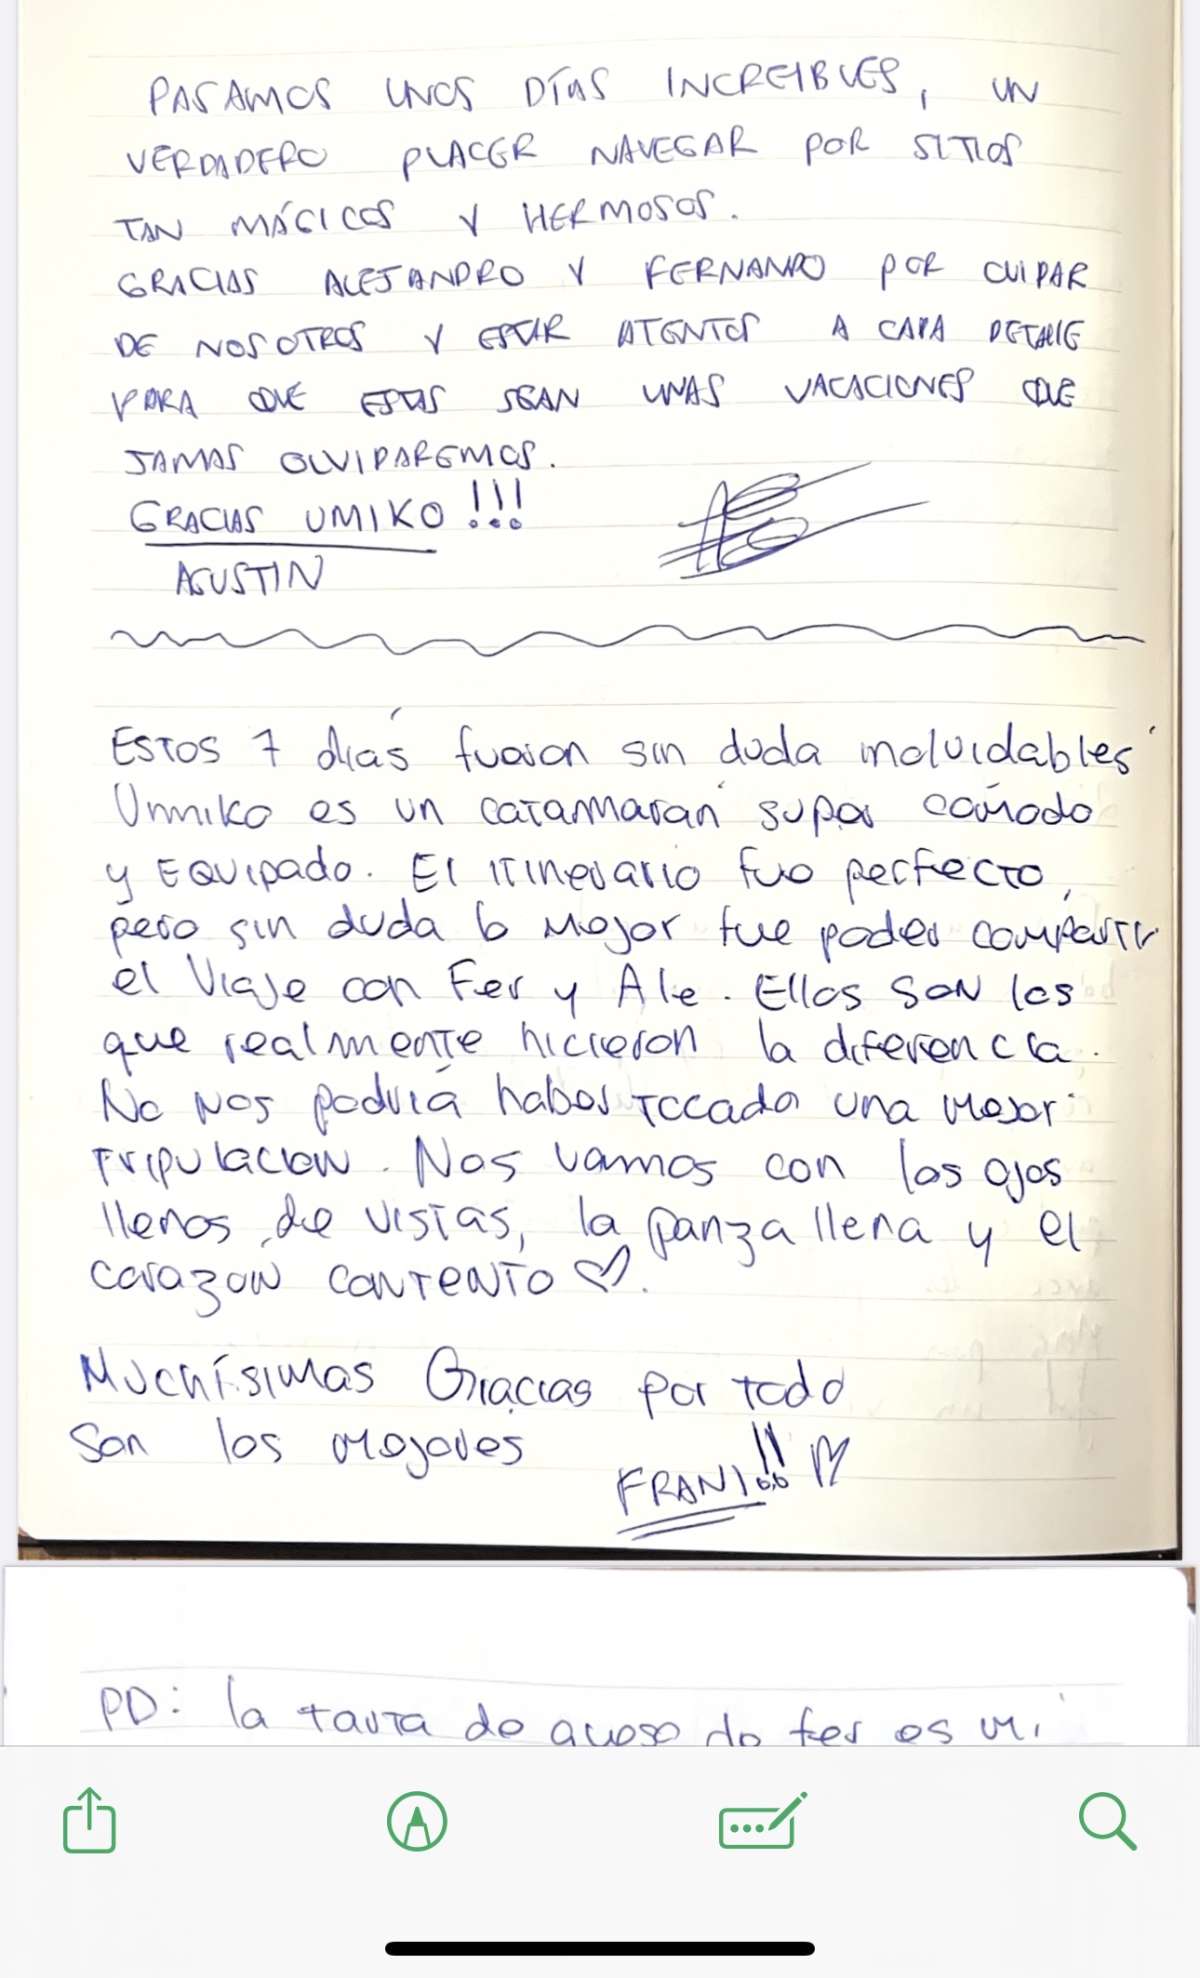 PASAMOS UNOS DÍAS INCREIBLES, UN
VERDADERO PLACER NAVEGAR POR SITIOS
TAN MÁGICOS Y HERMOSOS.
GRACIAS ALEJANDRO Y FERNANDO POR CUIDAR
DE NOSOTROS Y ESTAR ATENTOS A CADA DETALLE
PARA QUE ESTAS SEAN UNAS VACACIONES QUE
JAMAS OLVIDAREMOS.
GRACIAS UMIKO!!!
AGUSTIN
Estos 7 días fueron sin duda inolvidables
Ummiko es un catamarán super cómodo
y Equipado. El itinerario fue perfecto,
pero sin duda lo mejor fue poder compartir
el viaje con Fer y Ale. Ellos son los
que realmente hicieron la diferencia.
No nos podría haber tocado una mejor
tripulación. Nos vamos con los ojos
llenos de vistas, la panza llena y el
corazón contento ♡.
Muchísimas Gracias por todo
Son los mejores
FRAN!!! ♡
PD: la tarta de queso de fer es mi